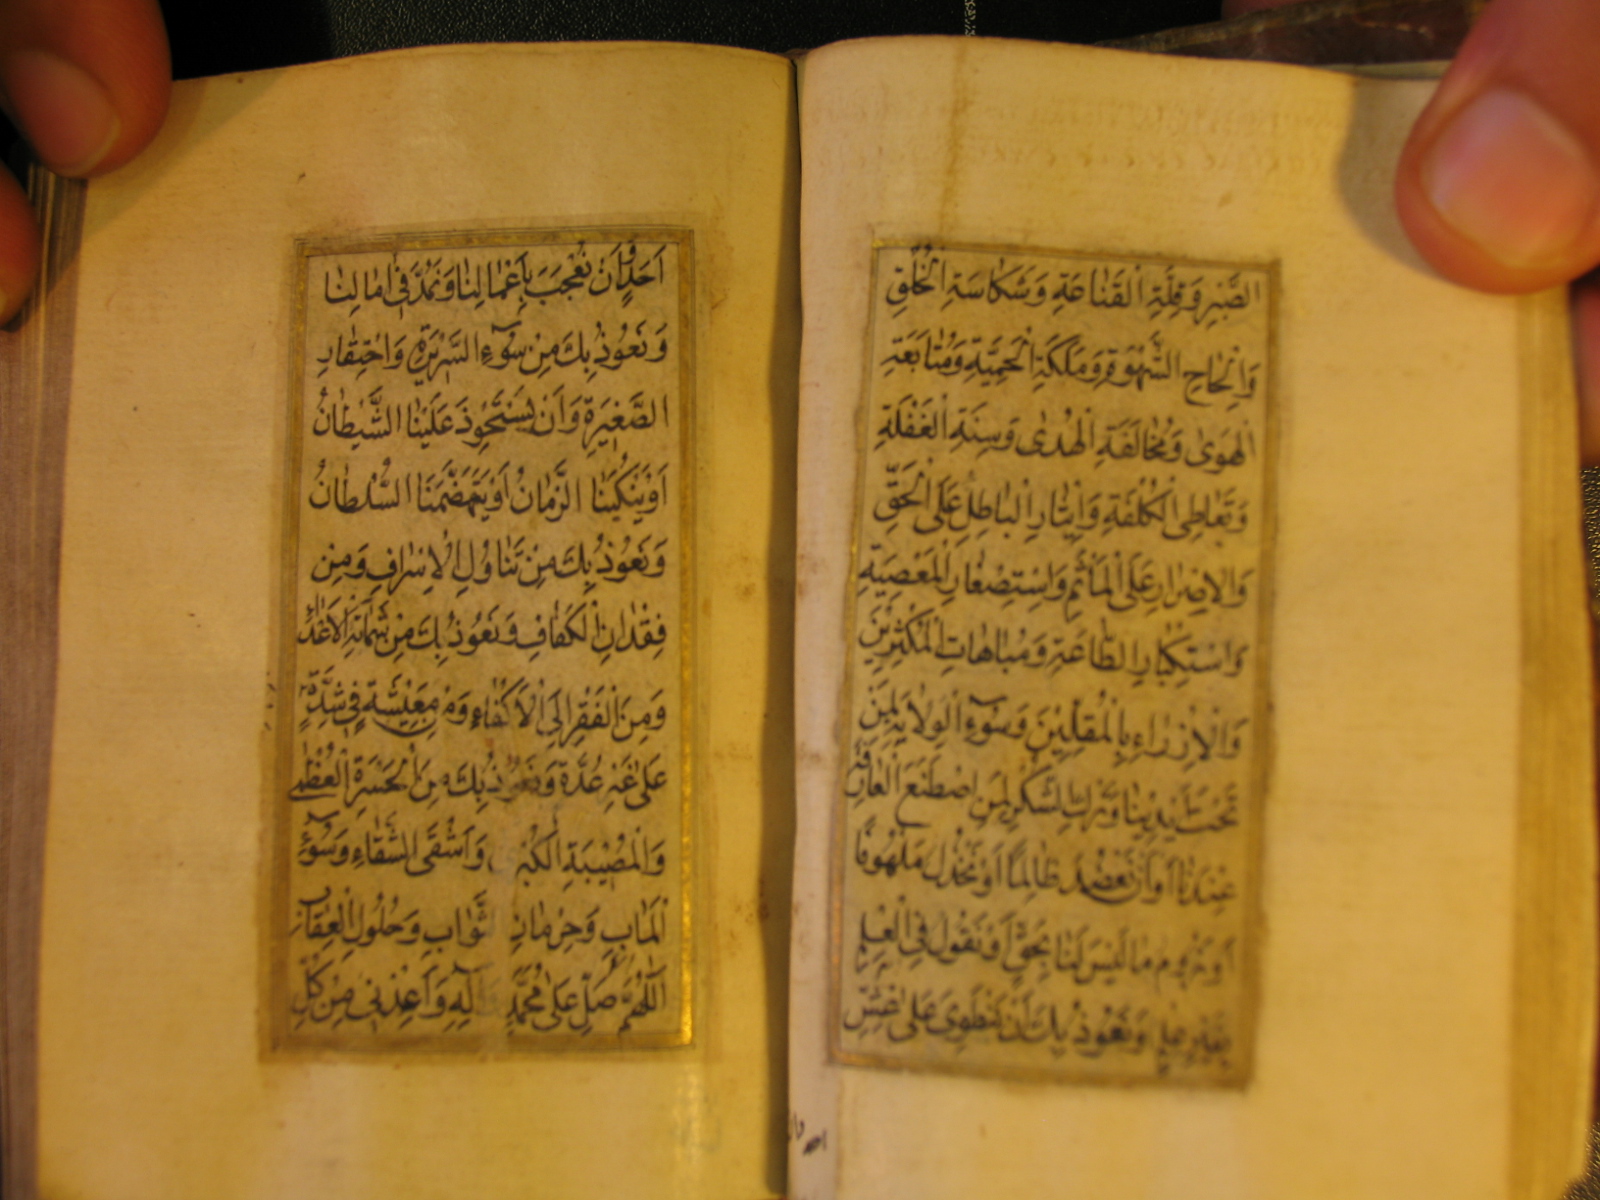 الصَّبْرِ وَقِلَّةِ الْقَنَاعَةِ وَشَكَاسَةِ الْخُلُقِ
وَاِلْحَاحِ الشَّهْوَةِ وَمَلَكَةِ الْحَمِيَّةِ وَمُتَابَعَةِ
الْهَوٰى وَمُخَالَفَةِ الْهُدٰى وَسِنَةِ الْغَفْلَةِ
وَتَعَاطِي الْكُلْفَةِ وَاِيثَارِ الْبَاطِلِ عَلَى الْحَقِّ
وَالاِصْرَارِ عَلَى الْمَأْثَمِ وَاسْتِصْغَارِ الْمَعْصِيَةِ
وَاسْتِكْبَارِ الطَّاعَةِ وَمُبَاهَاتِ الْمُكْثِرِينَ
وَالْاِزْرَاءِ بِالْمُقِلِّينَ وَسُوٓءِ الْوِلَايَةِ لِمَنْ
تَحْتَ اَيْدِينَا وَتَرْكِ الشُّكْرِ لِمَنِ اصْطَنَعَ الْعَارِفَةَ
عِنْدَنَا اَوْ اَنْ نَعْضُدَ ظَالِمًا اَوْ نَخْذُلَ مَلْهُوفًا
اَوْ نَرُومَ مَا لَيْسَ لَنَا بِحَقٍّ اَوْ نَقُولَ فِي الْعِلْمِ
بِغَيْرِ عِلْمٍ وَنَعُوذُ بِكَ اَنْ نَنْطَوِيَ عَلٰى غِشِّ
اَحَدٍ وَاَنْ نُعْجَبَ بِاَعْمَالِنَا وَنَمُدَّ فِي اٰمَالِنَا
وَنَعُوذُ بِكَ مِنْ سُوٓءِ السَّرِيرَةِ وَاحْتِقَارِ
الصَّغِيرَةِ وَاَنْ يَسْتَحْوِذَ عَلَيْنَا الشَّيْطَانُ
اَوْ يَنْكُبَنَا الزَّمَانُ اَوْ يَتَهَضَّمَنَا السُّلْطَانُ
وَنَعُوذُ بِكَ مِنْ تَنَاوُلِ الْاِسْرَافِ وَمِنْ
فِقْدَانِ الْكَفَافِ وَنَعُوذُ بِكَ مِنْ شَمَاتَةِ الْاَعْدَاءِ
وَمِنَ الْفَقْرِ اِلَى الْاَكْفَاءِ وَمِنْ مَعِيشَةٍ فِي شِدَّةٍ
عَلٰى غَيْرِ عُدَّةٍ وَنَعُوذُ بِكَ مِنَ الْحَسْرَةِ الْعُظْمٰى
وَالْمُصِيبَةِ الْكُبْرٰى وَاَشْقَى الشَّقَاءِ وَسُوٓءِ
الْمَاٰبِ وَحِرْمَانِ الثَّوَابِ وَحُلُولِ الْعِقَابِ
اَللّٰهُمَّ صَلِّ عَلٰى مُحَمَّدٍ وَاٰلِهِ وَاَعِذْنِي مِنْ كُلِّ